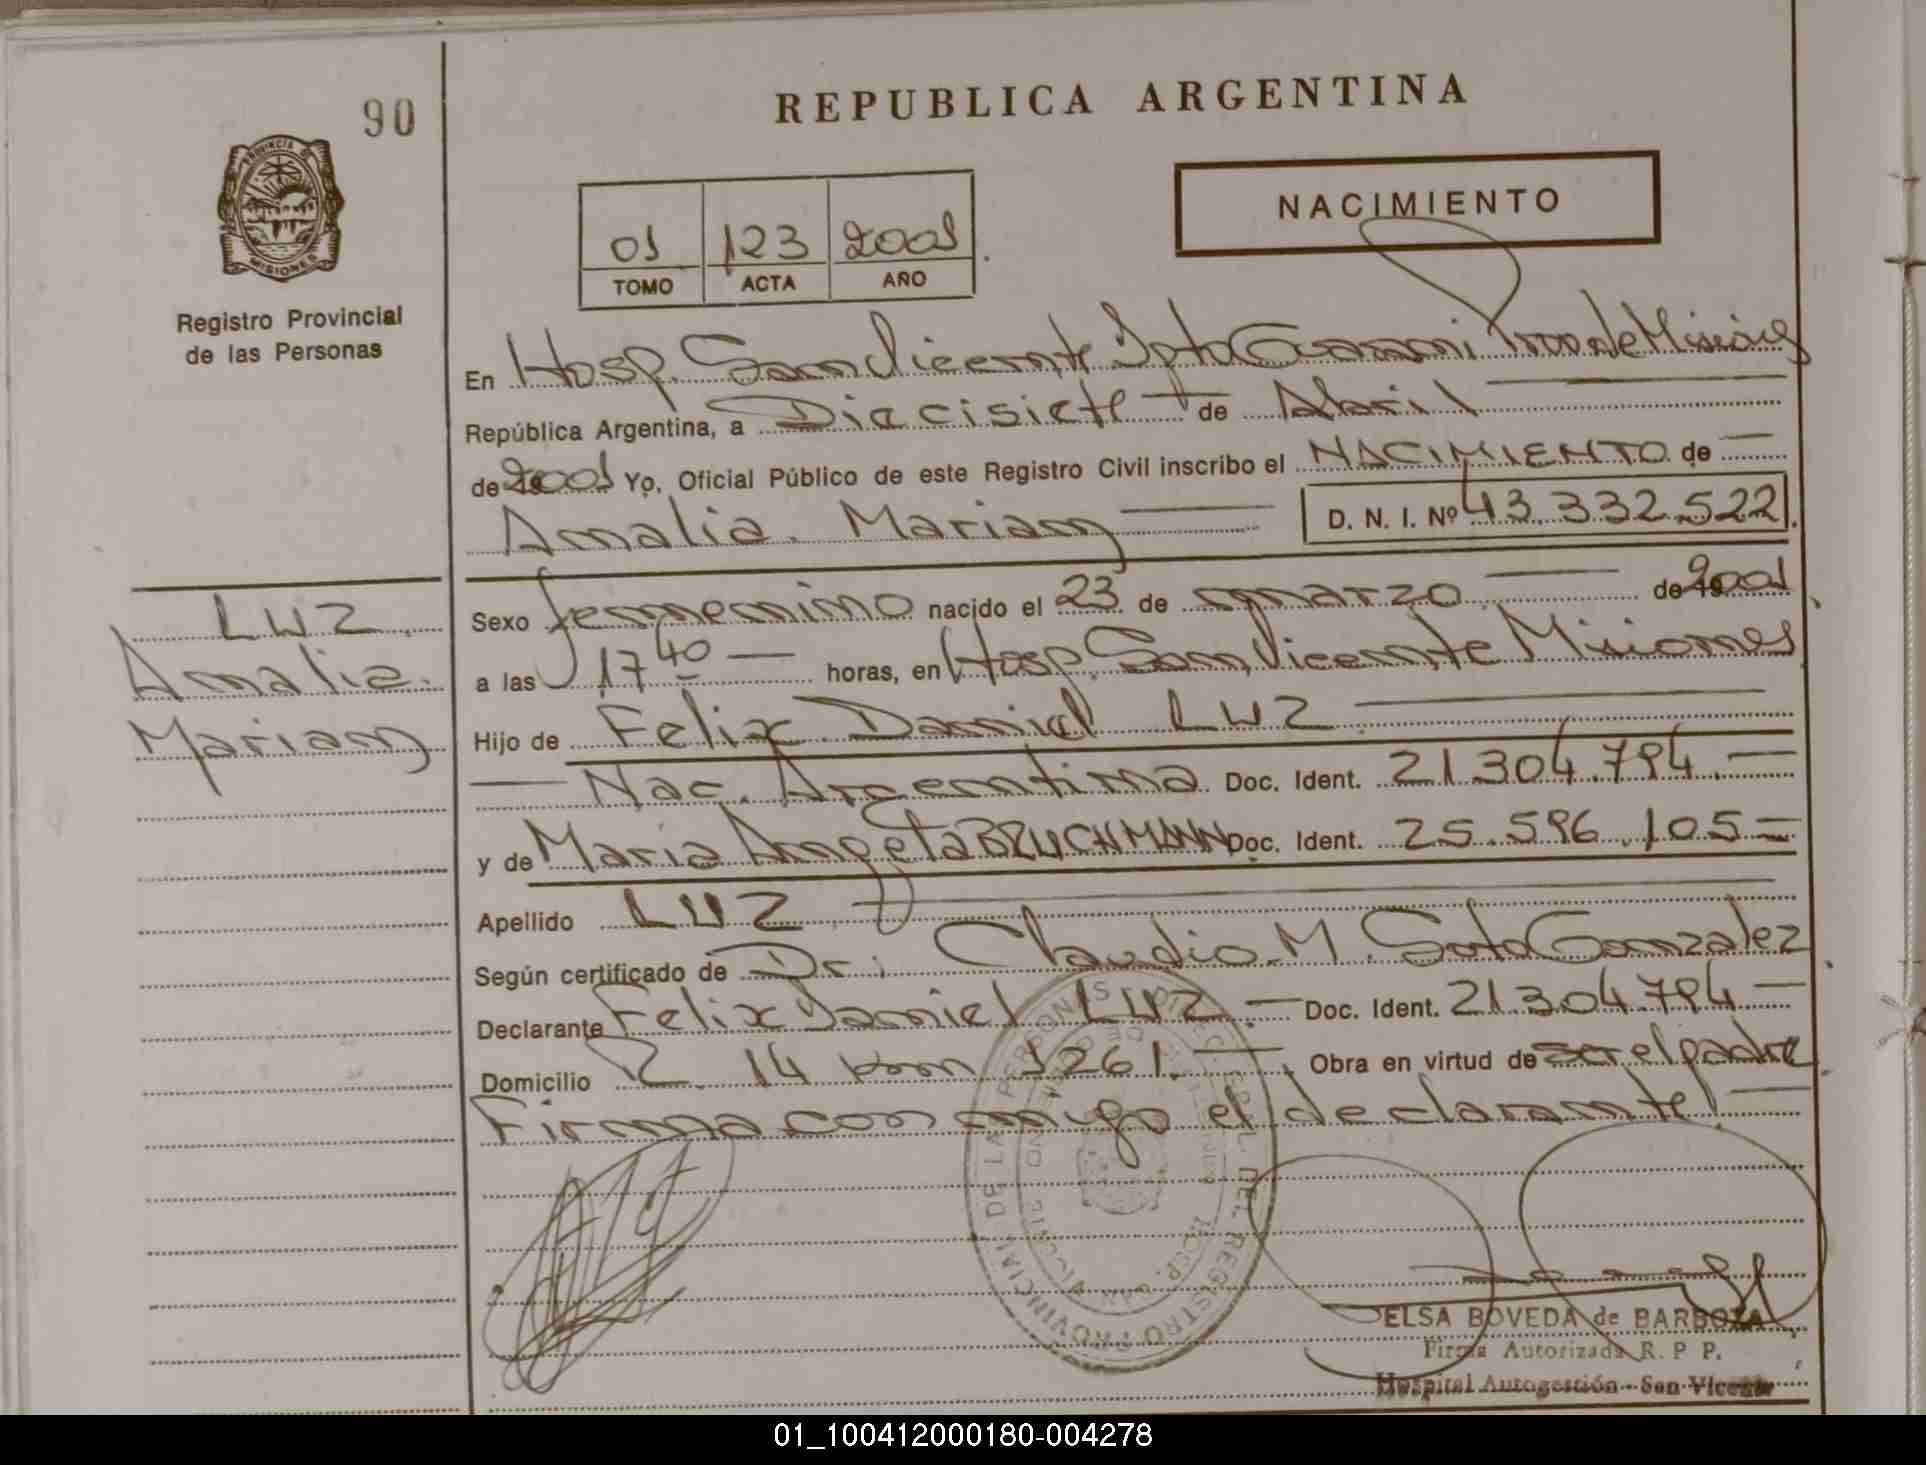 90
REPUBLICA ARGENTINA
PROVINCIA DE
MISIONES
Registro Provincial
de las Personas
01 123 2001
TOMO ACTA AÑO
NACIMIENTO
En Hosp. San Vicente Dpto Guarani Prov de Misiones
República Argentina, a Diecisiete de Abril
de 2001 Yo, Oficial Público de este Registro Civil inscribo el NACIMIENTO de
Amalia Mariam D. N. I. Nº 43.332.522
LUZ
Amalia
Mariam
Sexo femenino nacido el 23 de marzo de 2001
a las 17 40 horas, en Hosp. San Vicente Misiones
Hijo de Felix Daniel LUZ
Nac. Argentina Doc. Ident. 21.304.794.
y de Maria Angela BRUCHMANN Doc. Ident. 25.596.105
Apellido LUZ
Según certificado de Dr. Claudio M. Soto Gonzalez
Declarante Felix Daniel LUZ Doc. Ident. 21.304.794
Domicilio R. 14 km 1261. Obra en virtud de ser el padre
Firma con migo el declarante
ELSA BOVEDA de BARBOZA
Firma Autorizada R. P P.
Hospital Autogestión - San Vicente
01_100412000180-004278